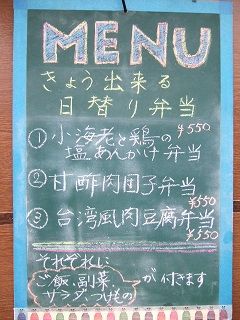 MENU
きょう出来る
日替り弁当
① 小海老と鶏の
塩あんかけ弁当 ¥550
② 甘酢肉団子弁当
¥550
③ 台湾風肉豆腐弁当
¥550
それぞれに
ご飯、副菜、
サラダ、つけもの
が付きます